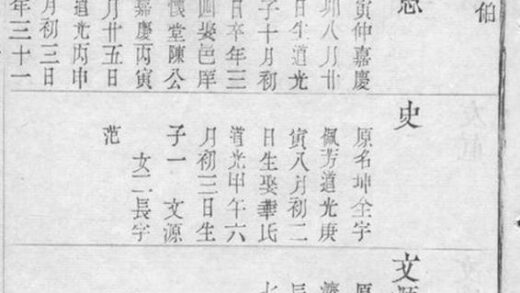 伯
寅仲嘉慶
卯八月廿
日生道光
子十月初
日卒年三
四娶邑庠
懷堂陳公
嘉慶丙寅
月廿五日
道光丙申
月初三日
年三十一
史
原名坤全字
佩芳道光庚
寅八月初二
日生娶華氏
道光甲午六
月初三日生
子一 文源
女二長字
范
文
原
七